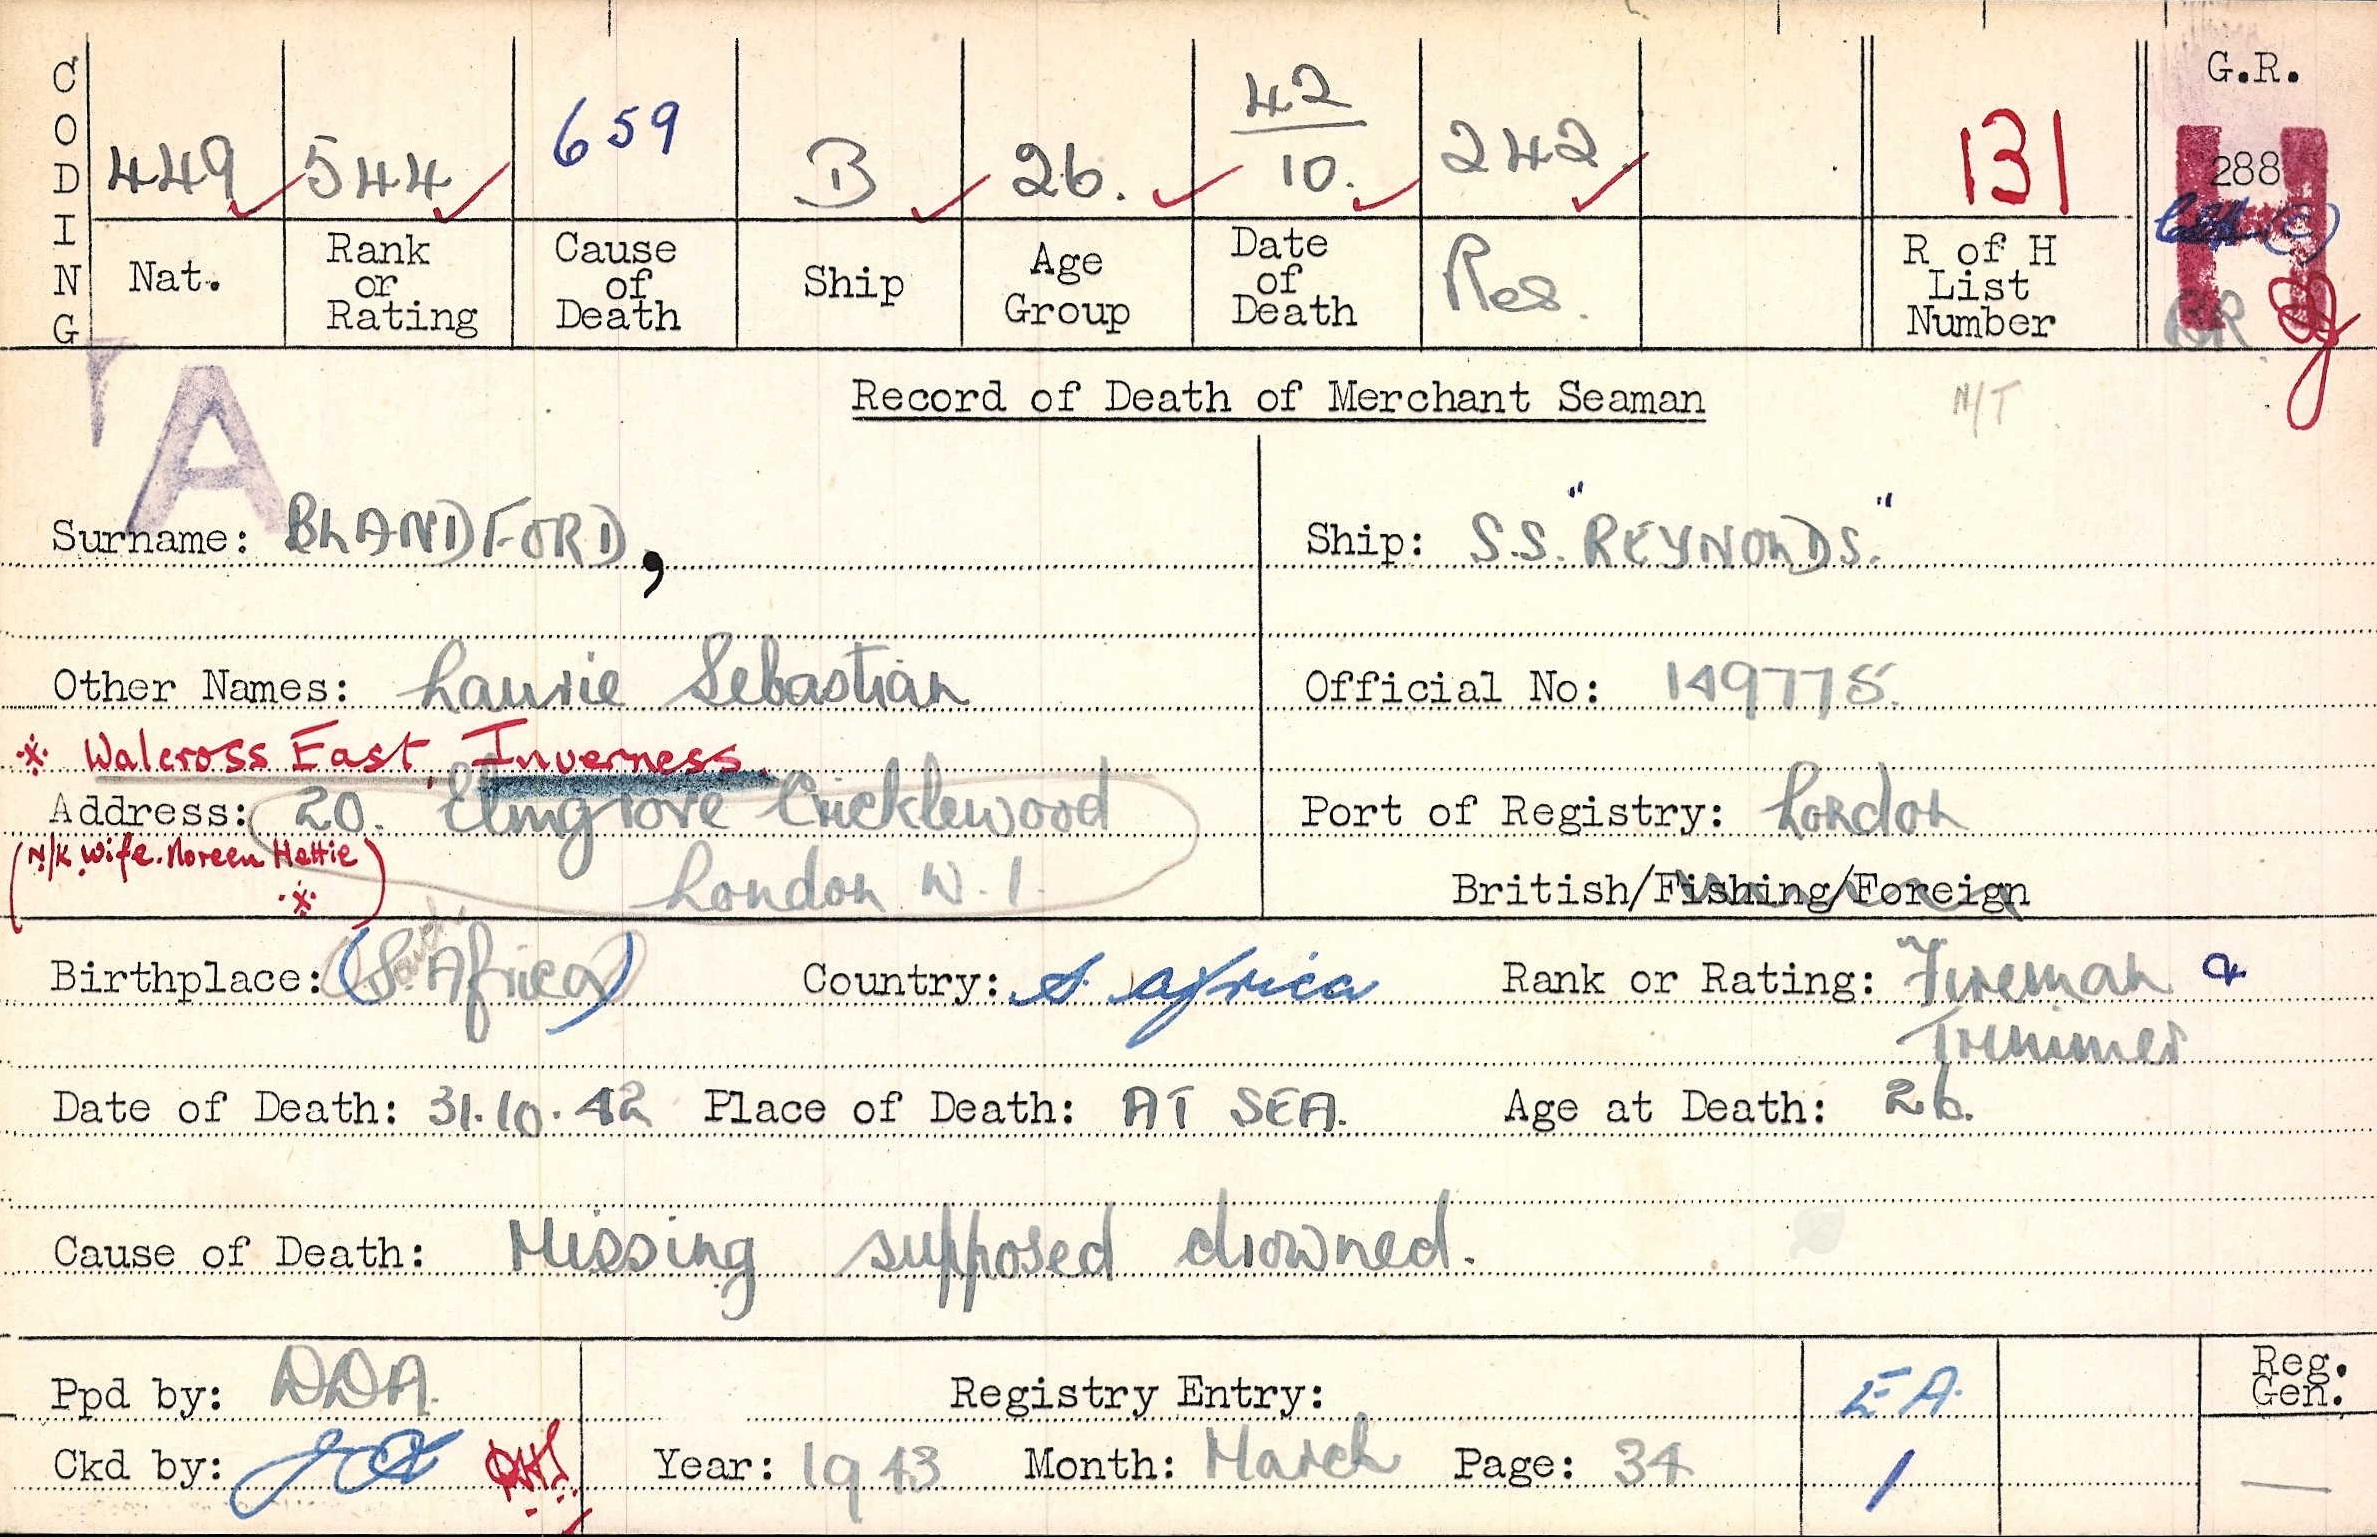 CODING
449 544 659 B 26. 42/10. 242 131 G.R.
288
H
Nat. Rank or Rating Cause of Death Ship Age Group Date of Death Res. R of H List Number
BR
A
Record of Death of Merchant Seaman N/T
Surname: BLANDFORD, Ship: S.S. "REYNOLDS."
Other Names: Laurie Sebastian Official No: 149775.
* Walcross East, Inverness.
Address: 20. Elmgrove Cricklewood Port of Registry: London
(N/K Wife. Noreen Hettie *) London W.1. British/Fishing/Foreign
Birthplace: (S. Africa) Country: S. Africa Rank or Rating: Fireman &
Trimmer
Date of Death: 31.10.42 Place of Death: AT SEA. Age at Death: 26.
Cause of Death: Missing supposed drowned.
Ppd by: DDA. Registry Entry: EA. Reg. Gen.
Ckd by: Year: 1943 Month: March Page: 34 1 —